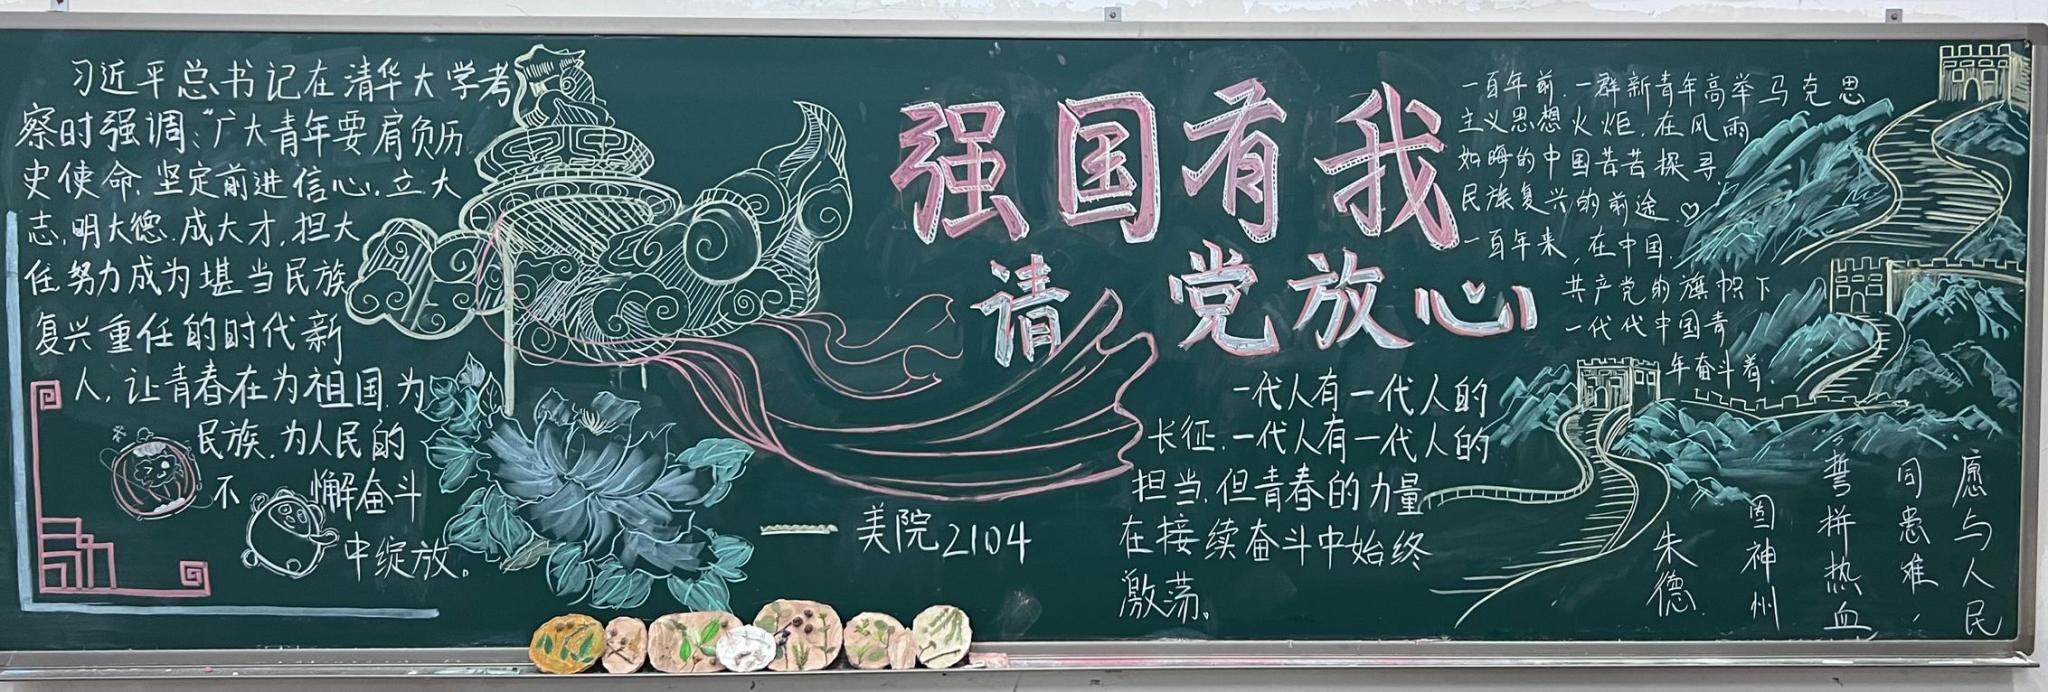 习近平总书记在清华大学考
察时强调:“广大青年要肩负历
史使命,坚定前进信心,立大
志,明大德,成大才,担大
任,努力成为堪当民族
复兴重任的时代新
人,让青春在为祖国,为
民族,为人民的
不懈奋斗
中绽放。
强国有我
请党放心
——美院2104
一百年前,一群新青年高举马克思
主义思想火炬,在风雨
如晦的中国苦苦探寻
民族复兴的前途♡
一百年来,在中国
共产党的旗帜下
一代代中国青
年奋斗着,
一代人有一代人的
长征,一代人有一代人的
担当,但青春的力量
在接续奋斗中始终
激荡。
愿与人民
同患难,
誓拼热血
固神州
朱德